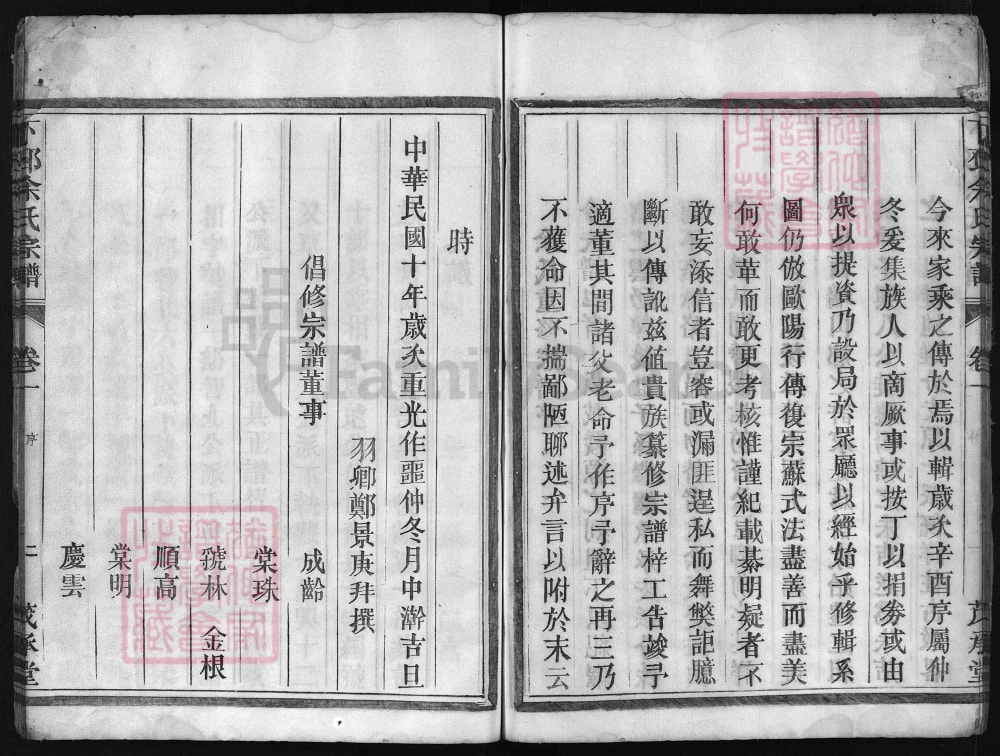 今來家乘之傳於焉以輯歲次辛酉序屬仲
冬爰集族人以商厥事或按丁以捐劵或由
衆以提資乃設局於眾廳以經始乎修輯系
圖仍倣歐陽行傳復宗蘇式法盡善而盡美
何敢華而敢更考核惟謹紀載綦明疑者不
敢妄添信者豈容或漏匪逞私而舞獘詎臆
斷以傳訛兹值貴族纂修宗譜梓工告竣予
適董其間諸父老命予作序予辭之再三乃
不獲命因不揣鄙陋聊述弁言以附於末云
時
中華民國十年歲次重光作噩仲冬月中澣吉旦
羽卿鄭景庚拜撰
倡修宗譜董事
成齡
棠珠
號林 金根
順高
棠明
慶雲
下邳余氏宗譜
卷一
序
二
茂承堂
Family Search